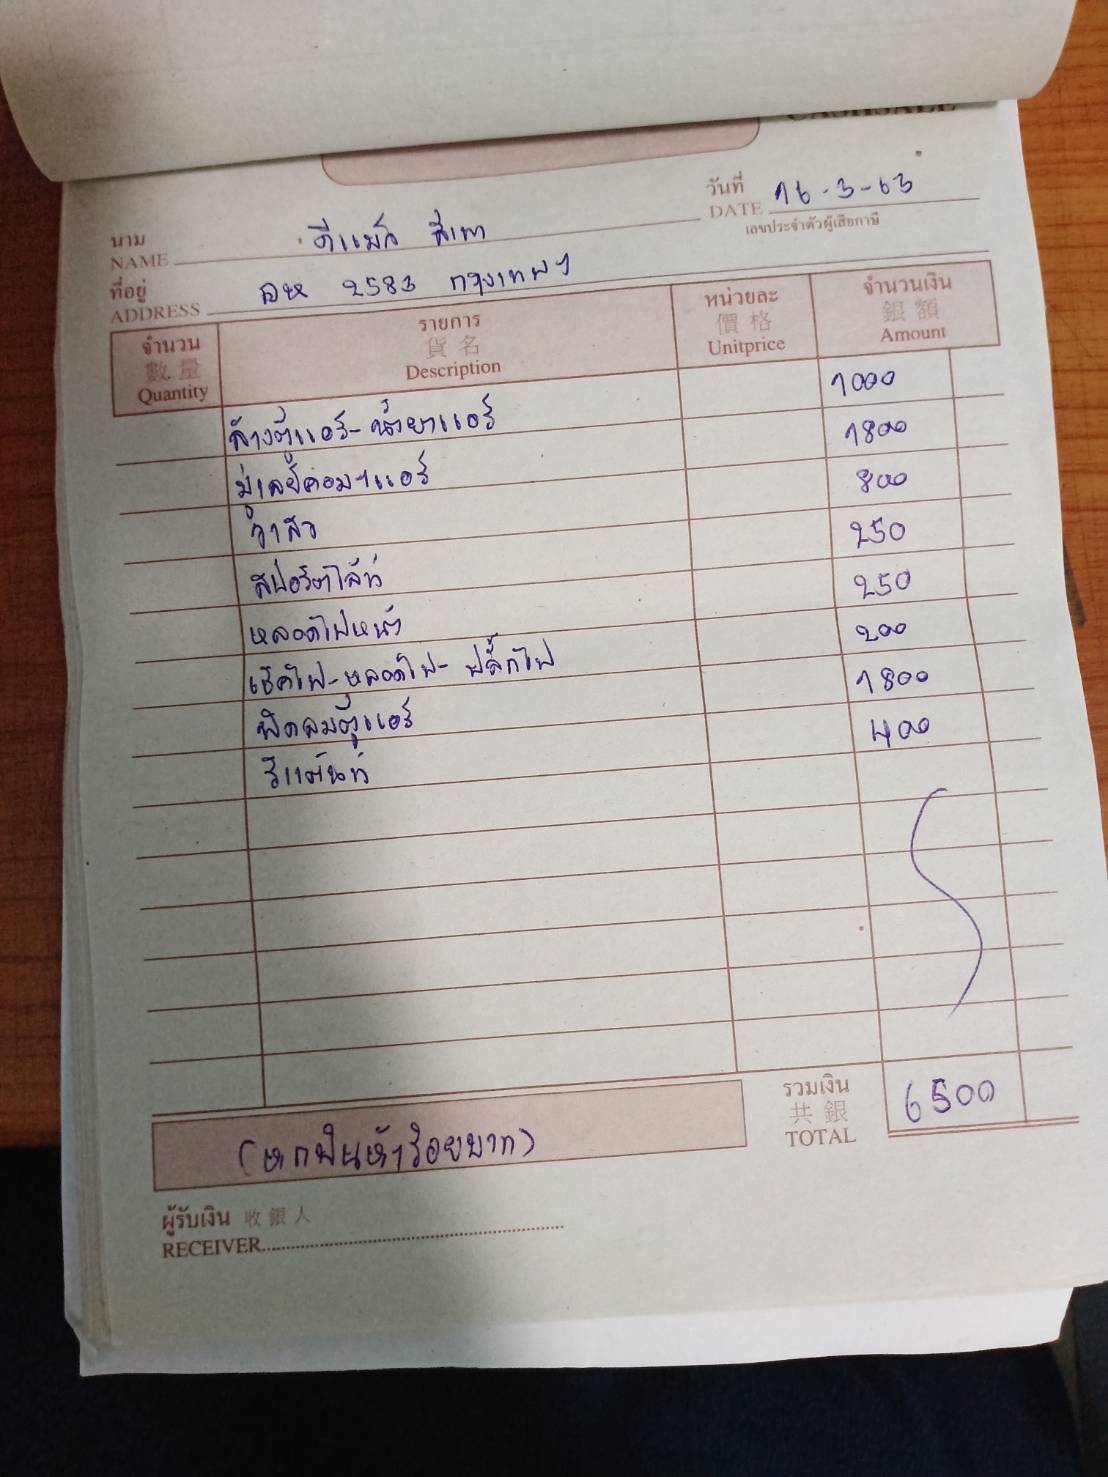 CASHSALE
วันที่
DATE 16-3-63
เลขประจำตัวผู้เสียภาษี
นาม
NAME ดีแม๊ก สีเทา
ที่อยู่
ADDRESS ฌห 2583 กรุงเทพฯ
จำนวน 數量 Quantity
รายการ 貨名 Description
หน่วยละ 價格 Unitprice
จำนวนเงิน 銀額 Amount
ล้างตู้แอร์-น้ำยาแอร์ 1000
มู่เลย์คอมฯแอร์ 1800
วาล์ว 800
สปอร์ตไล้ท์ 250
หลอดไฟหน้า 250
เช็คไฟ-หลอดไฟ-ปลั๊กไฟ 200
พัดลมตู้แอร์ 1800
รีแต้นท์ 400
รวมเงิน
共銀
TOTAL 6500
(หกพันห้าร้อยบาท)
ผู้รับเงิน 收銀人
RECEIVER